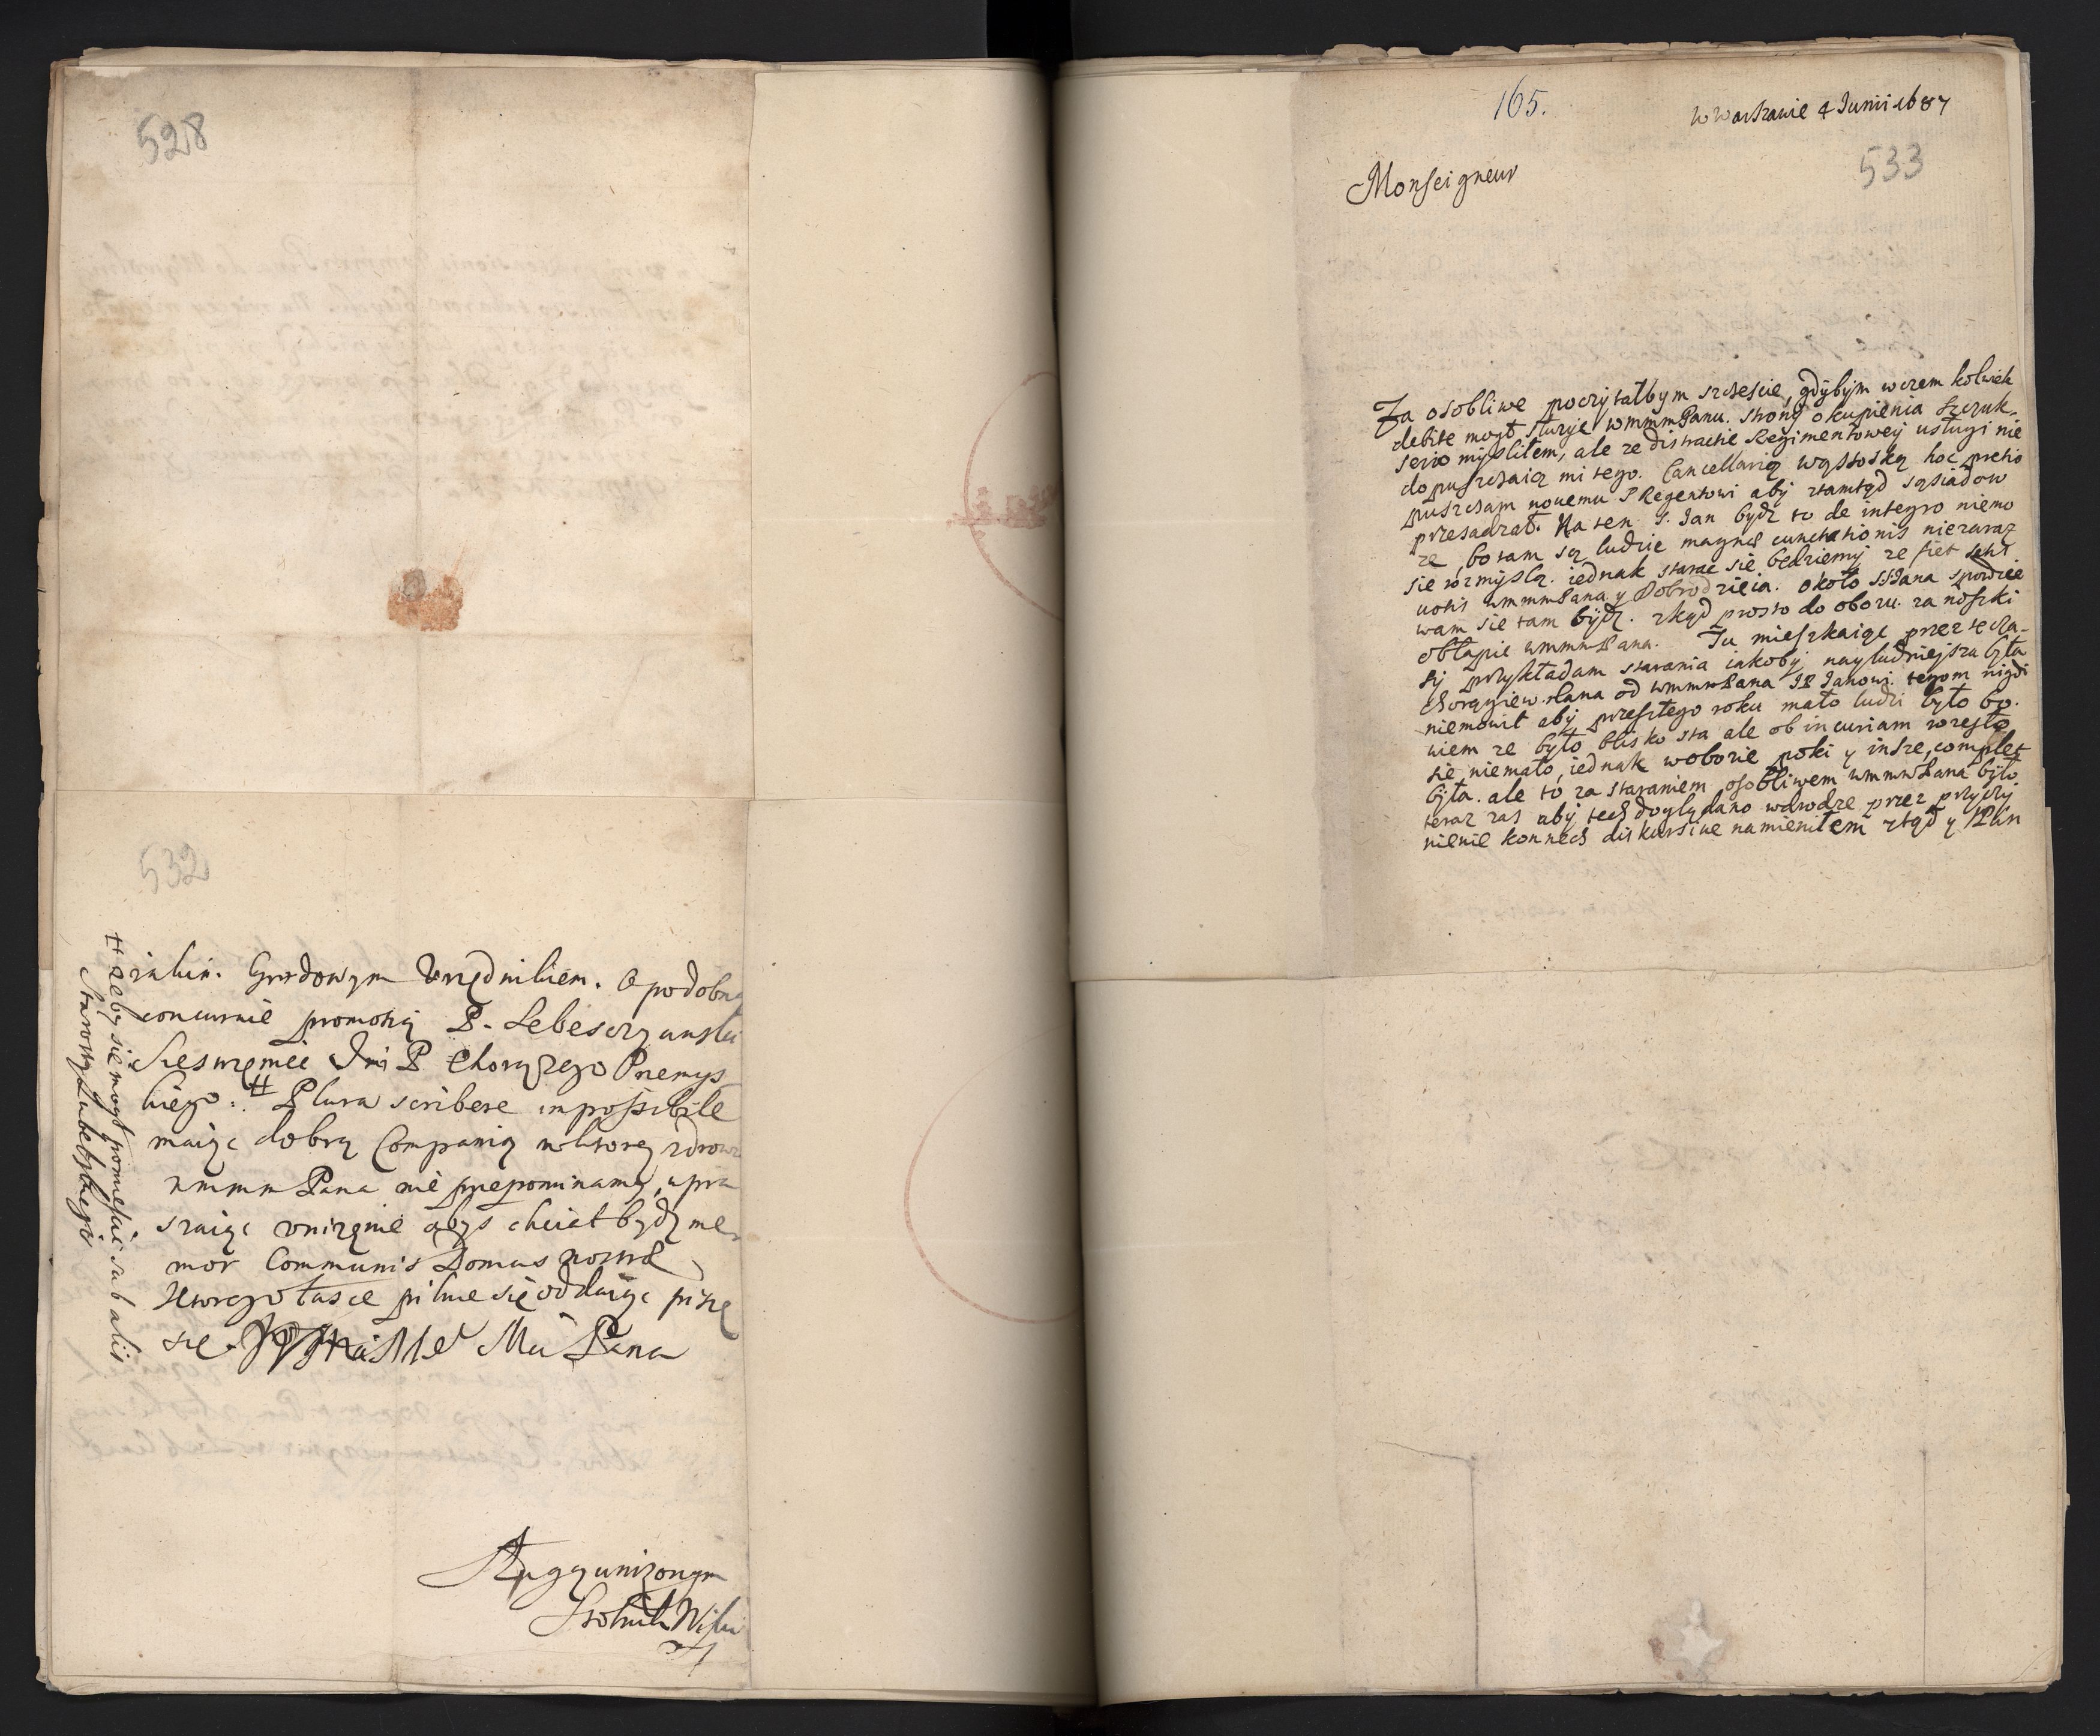 528
532
inhin. Grodowym Vrzędnikiem. O podobną
concurnie promotią P. Lebeszczanski
Siestrzeniec Jmi P Chorązego Przemys
kiego. # Plura scribere impossibile
maiąc dobrą Companią w ktorey zdrow
wmmm Pana nie przepominamy, upra
szaiąc vnizenie abys chciał bydz me
mor Communis Domus nostræ
Ktorego łasce pilnie się oddaiąc piszę
się. Mśi Pana
Sługą unizonym
Stolnik
# zeby się mogł pomieścić sub aliis
Starosty Lubelskiego
165.
W Warszawie 4 Junii 1687
533
Monseigneur
Za osobliwe poczytałbym szczescie, gdybym wczem kolwiek
debite mogł słuzyc wmmmPanu. strony okupienia Szczuk-
serio myslilem, ale ze distractie Regimentowey usługi nie
dopuszczaią mi tego. Cancellarią hoc pretio
puszczam nouemu P Regentowi aby ztamtąd sąsiadow
przesadzał. Na ten S. Jan bydz to de integro niemo
ze, bo tam są ludzie magnæ cunctationis niezaraz
sie rozmyslą. iednak starac się będziemy ze fiet satis
uotis wmmmPana y Dobrodzieia. około SJana spodzie
wam sie tam bydz. zkąd prosto do obozu. za noszki
obłapie wmmmPana. Tu mieszkaiąc przez te cza-
sy przykładam starania iakoby nayludnieysza była
chorągiew dana od wmmmPana JP Janowi. tegom nigdi
niemowił aby przeszłego roku mało ludzi było bo
wiem ze było blisko sta ale ob incuriam rozeszło
się niemało, iednak wobozie poki y insze, complet
była. ale to za staraniem osobliwem wmmmPana było
teraz zas aby tech doglądano wdrodze przez przyczy
nienie konnech diskursiue namienilem ztąd y JPan